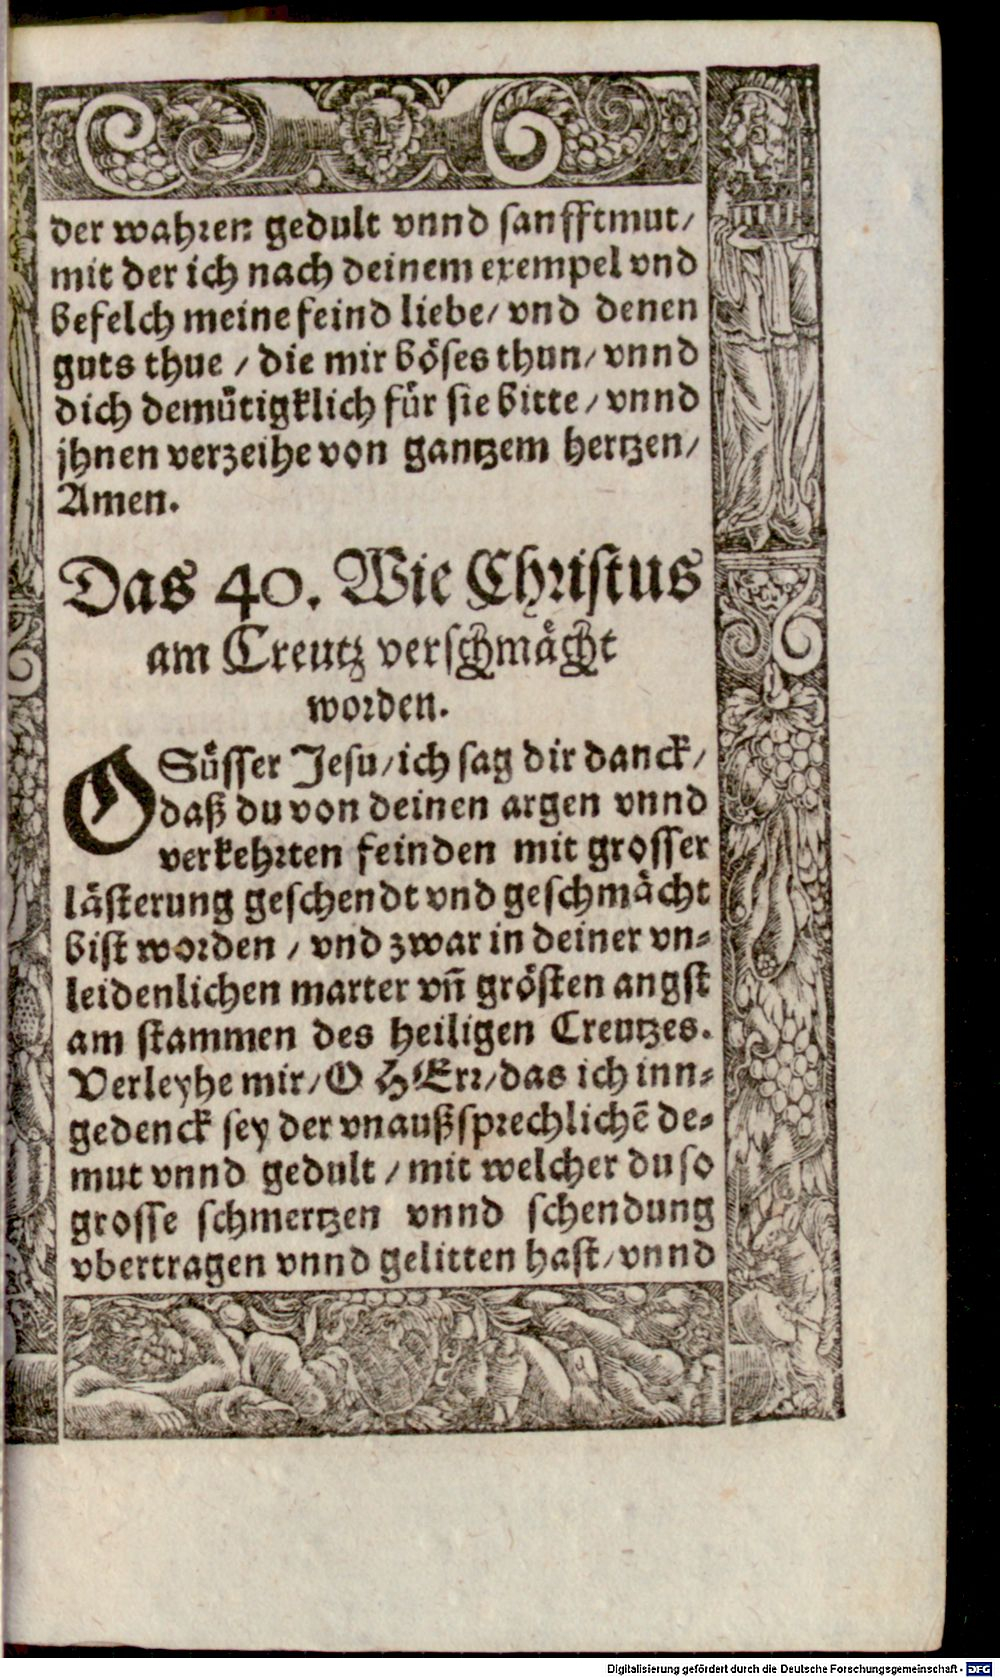 der wahren gedult vnnd sanfftmut/
mit der ich nach deinem exempel vnd
befelch meine feind liebe/ vnd denen
guts thue / die mir böses thun/ vnnd
dich demütigklich für sie bitte / vnnd
jhnen verzeihe von gantzem hertzen/
Amen.
Das 40. Wie Christus
am Creutz verschmächt
worden.
O Süsser Jesu/ ich sag dir danck/
daß du von deinen argen vnnd
verkehrten feinden mit grosser
lästerung geschendt vnd geschmächt
bist worden / vnd zwar in deiner vn-
leidenlichen marter vñ grösten angst
am stammen des heiligen Creutzes.
Verleyhe mir/ O HErr/ das ich inn-
gedenck sey der vnaußsprechlichẽ de-
mut vnnd gedult / mit welcher du so
grosse schmertzen vnnd schendung
vbertragen vnnd gelitten hast/ vnnd
Digitalisierung gefördert durch die Deutsche Forschungsgemeinschaft - DFG